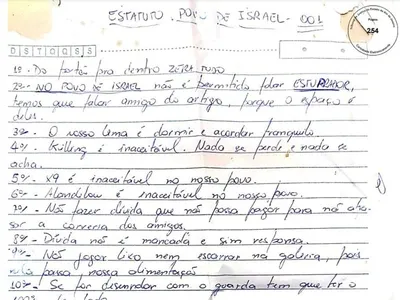 ESTATUTO. POVO DE ISRAEL - 001
254
D S T Q Q S S
1º - Do portão pra dentro ZERA TUDO
2º - NO POVO DE ISRAEL não é permitido falar ESTUPRADOR,
temos que falar amigo do artigo, porque o espaço é
deus.
3º - O nosso lema é dormir e acordar tranquilo.
4º - Killing é inaceitável. Nada se perde e nada se
acha.
5º - X9 é inaceitável no nosso povo.
6º - Alandilou é inaceitável no nosso povo.
7º - Não fazer dívida que não possa pagar para não atra
sar a correria dos amigos.
8º - Dívida não é mancada e sim responsa.
9º - Não jogar lixo nem escarrar na galeria, pois
nela passa nossa alimentação
10º - Se for desenrolar com o guarda tem que ter o